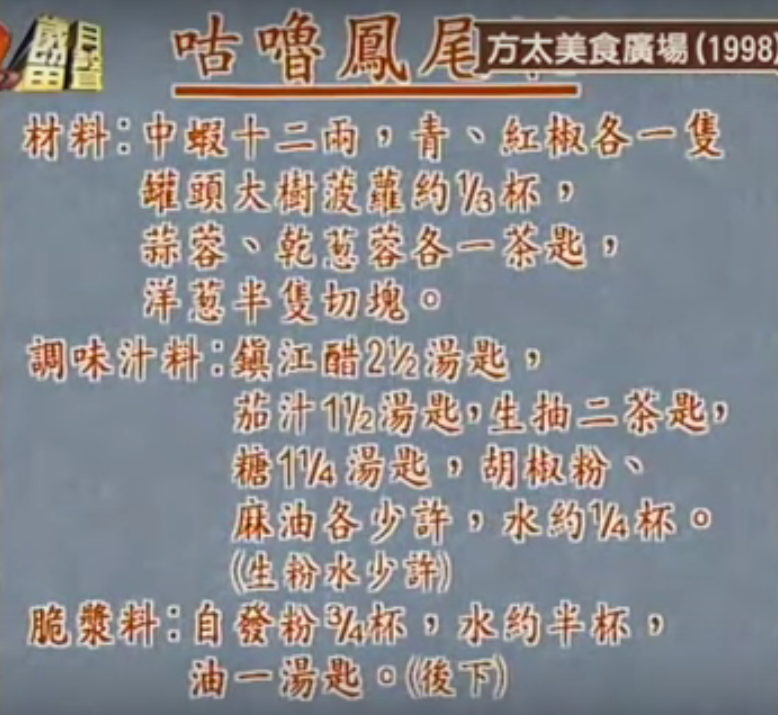 歲月留聲
咕嚕鳳尾
方太美食廣場(1998)
材料:中蝦十二兩,青、紅椒各一隻
罐頭大樹菠蘿約1/3杯,
蒜蓉、乾葱蓉各一茶匙,
洋葱半隻切塊。
調味汁料:鎮江醋2½湯匙,
茄汁1½湯匙,生抽二茶匙,
糖1¼湯匙,胡椒粉、
麻油各少許,水約¼杯。
(生粉水少許)
脆漿料:自發粉¾杯,水約半杯,
油一湯匙。(後下)